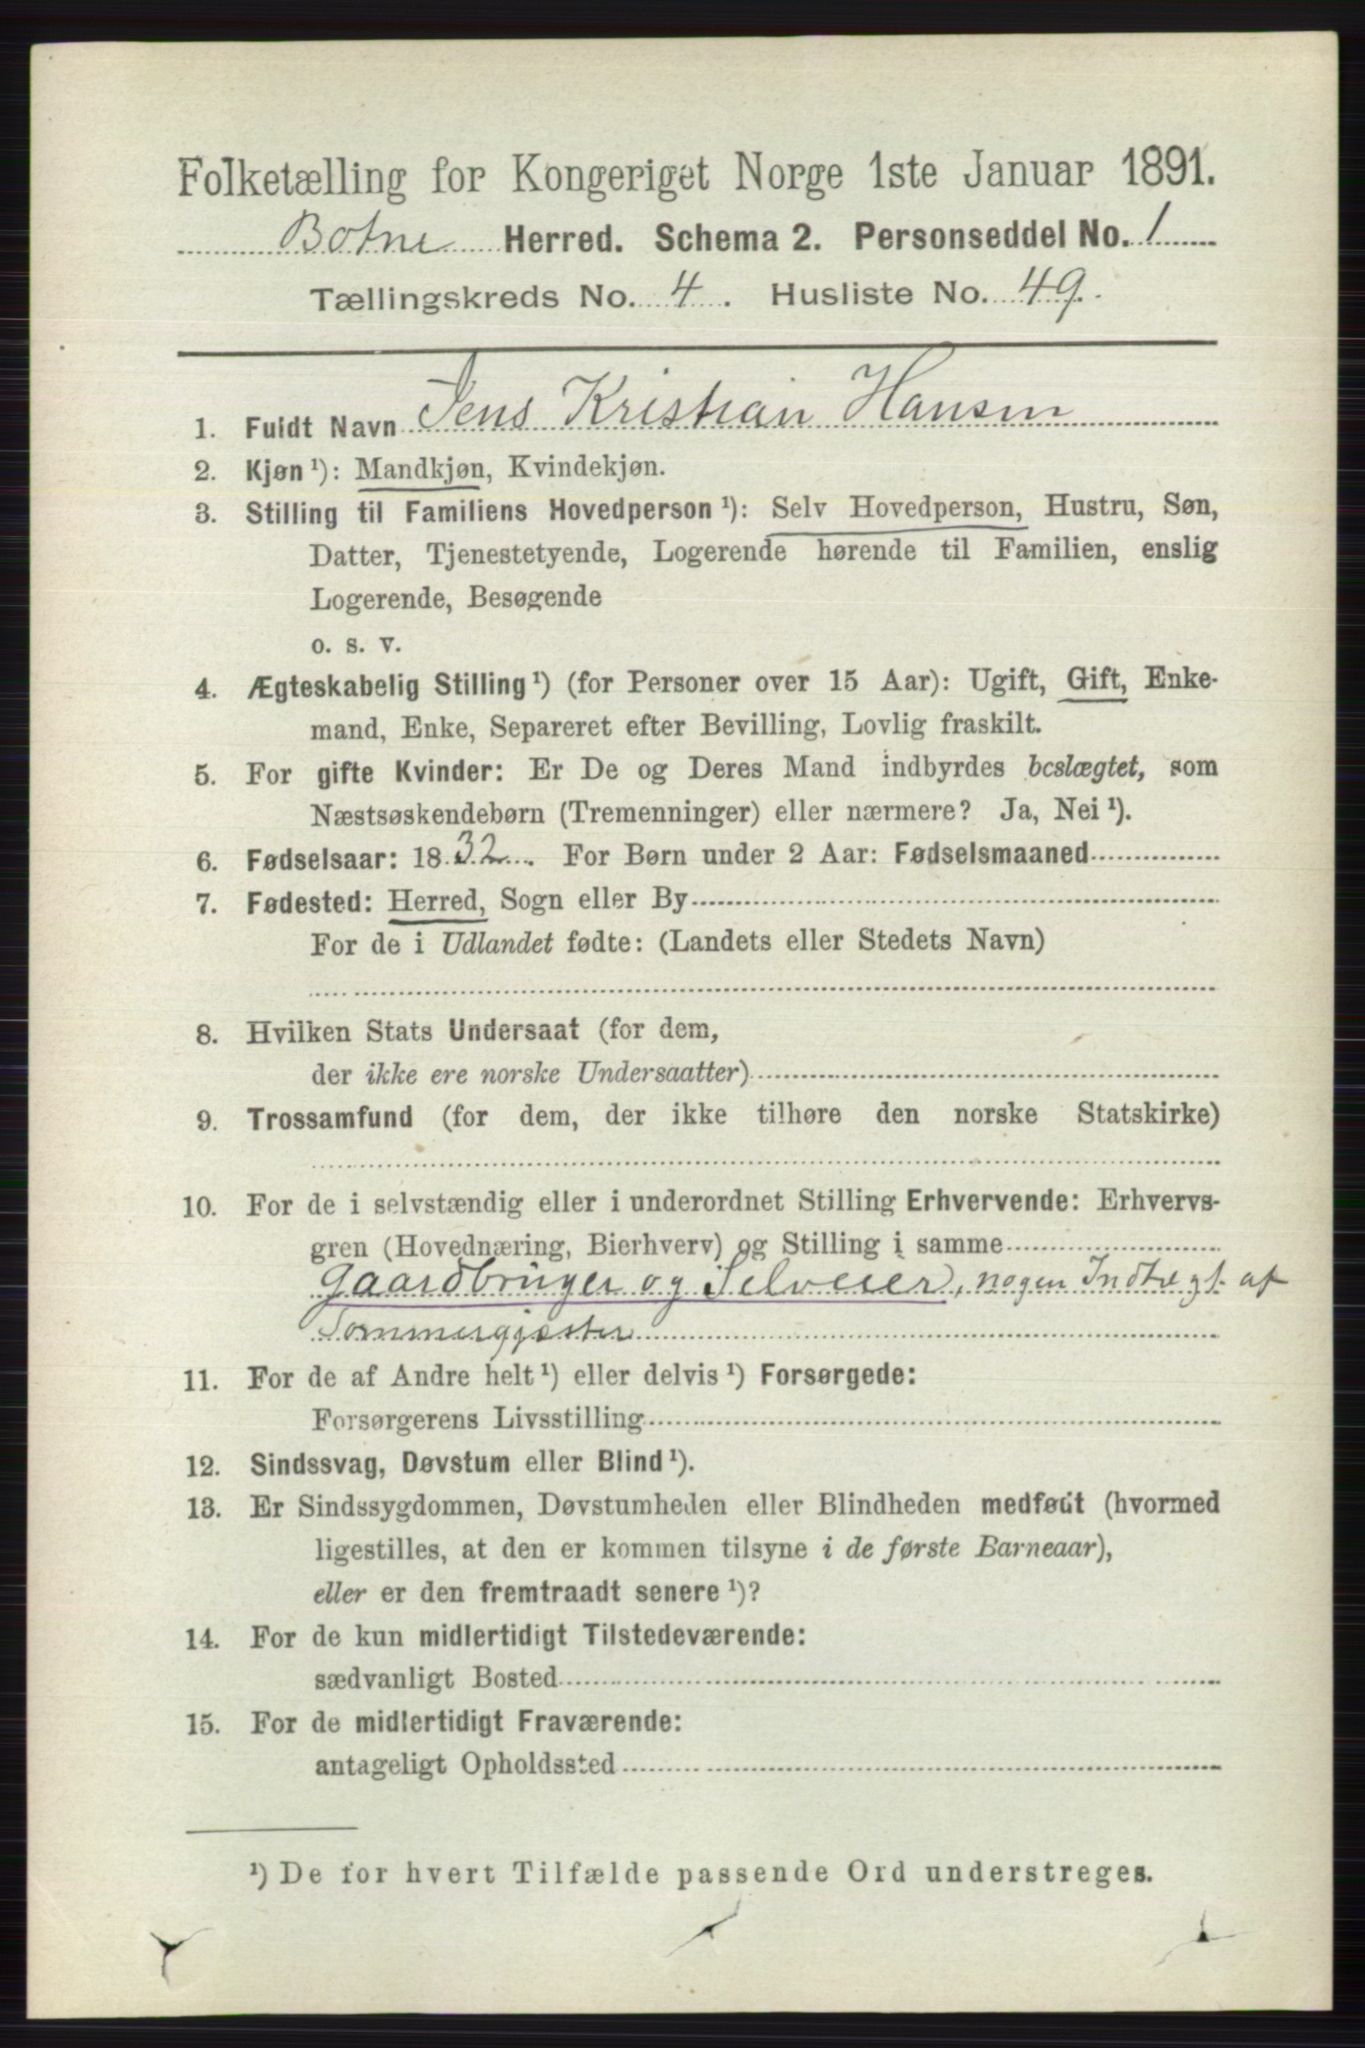 Folketælling for Kongeriget Norge 1ste Januar 1891.
Botne Herred. Schema 2. Personseddel No. 1
Tællingskreds No. 4. Husliste No. 49.
1. Fuldt Navn Jens Kristian Hansen
2. Kjøn ¹): Mandkjøn, Kvindekjøn.
3. Stilling til Familiens Hovedperson ¹): Selv Hovedperson, Hustru, Søn,
Datter, Tjenestetyende, Logerende hørende til Familien, enslig
Logerende, Besøgende
o. s. v.
4. Ægteskabelig Stilling ¹) (for Personer over 15 Aar): Ugift, Gift, Enke-
mand, Enke, Separeret efter Bevilling, Lovlig fraskilt.
5. For gifte Kvinder: Er De og Deres Mand indbyrdes beslægtet, som
Næstsøskendebørn (Tremenninger) eller nærmere? Ja, Nei ¹).
6. Fødselsaar: 1832. For Børn under 2 Aar: Fødselsmaaned
7. Fødested: Herred, Sogn eller By
For de i Udlandet fødte: (Landets eller Stedets Navn)
8. Hvilken Stats Undersaat (for dem,
der ikke ere norske Undersaatter)
9. Trossamfund (for dem, der ikke tilhøre den norske Statskirke)
10. For de i selvstændig eller i underordnet Stilling Erhvervende: Erhvervs-
gren (Hovednæring, Bierhverv) og Stilling i samme
Gaardbruger og Selveier, nogen Indtægt. af
Sommergjæster
11. For de af Andre helt ¹) eller delvis ¹) Forsørgede:
Forsørgerens Livsstilling
12. Sindssvag, Døvstum eller Blind ¹).
13. Er Sindssygdommen, Døvstumheden eller Blindheden medfødt (hvormed
ligestilles, at den er kommen tilsyne i de første Barneaar),
eller er den fremtraadt senere ¹)?
14. For de kun midlertidigt Tilstedeværende:
sædvanligt Bosted
15. For de midlertidigt Fraværende:
antageligt Opholdssted
¹) De for hvert Tilfælde passende Ord understreges.